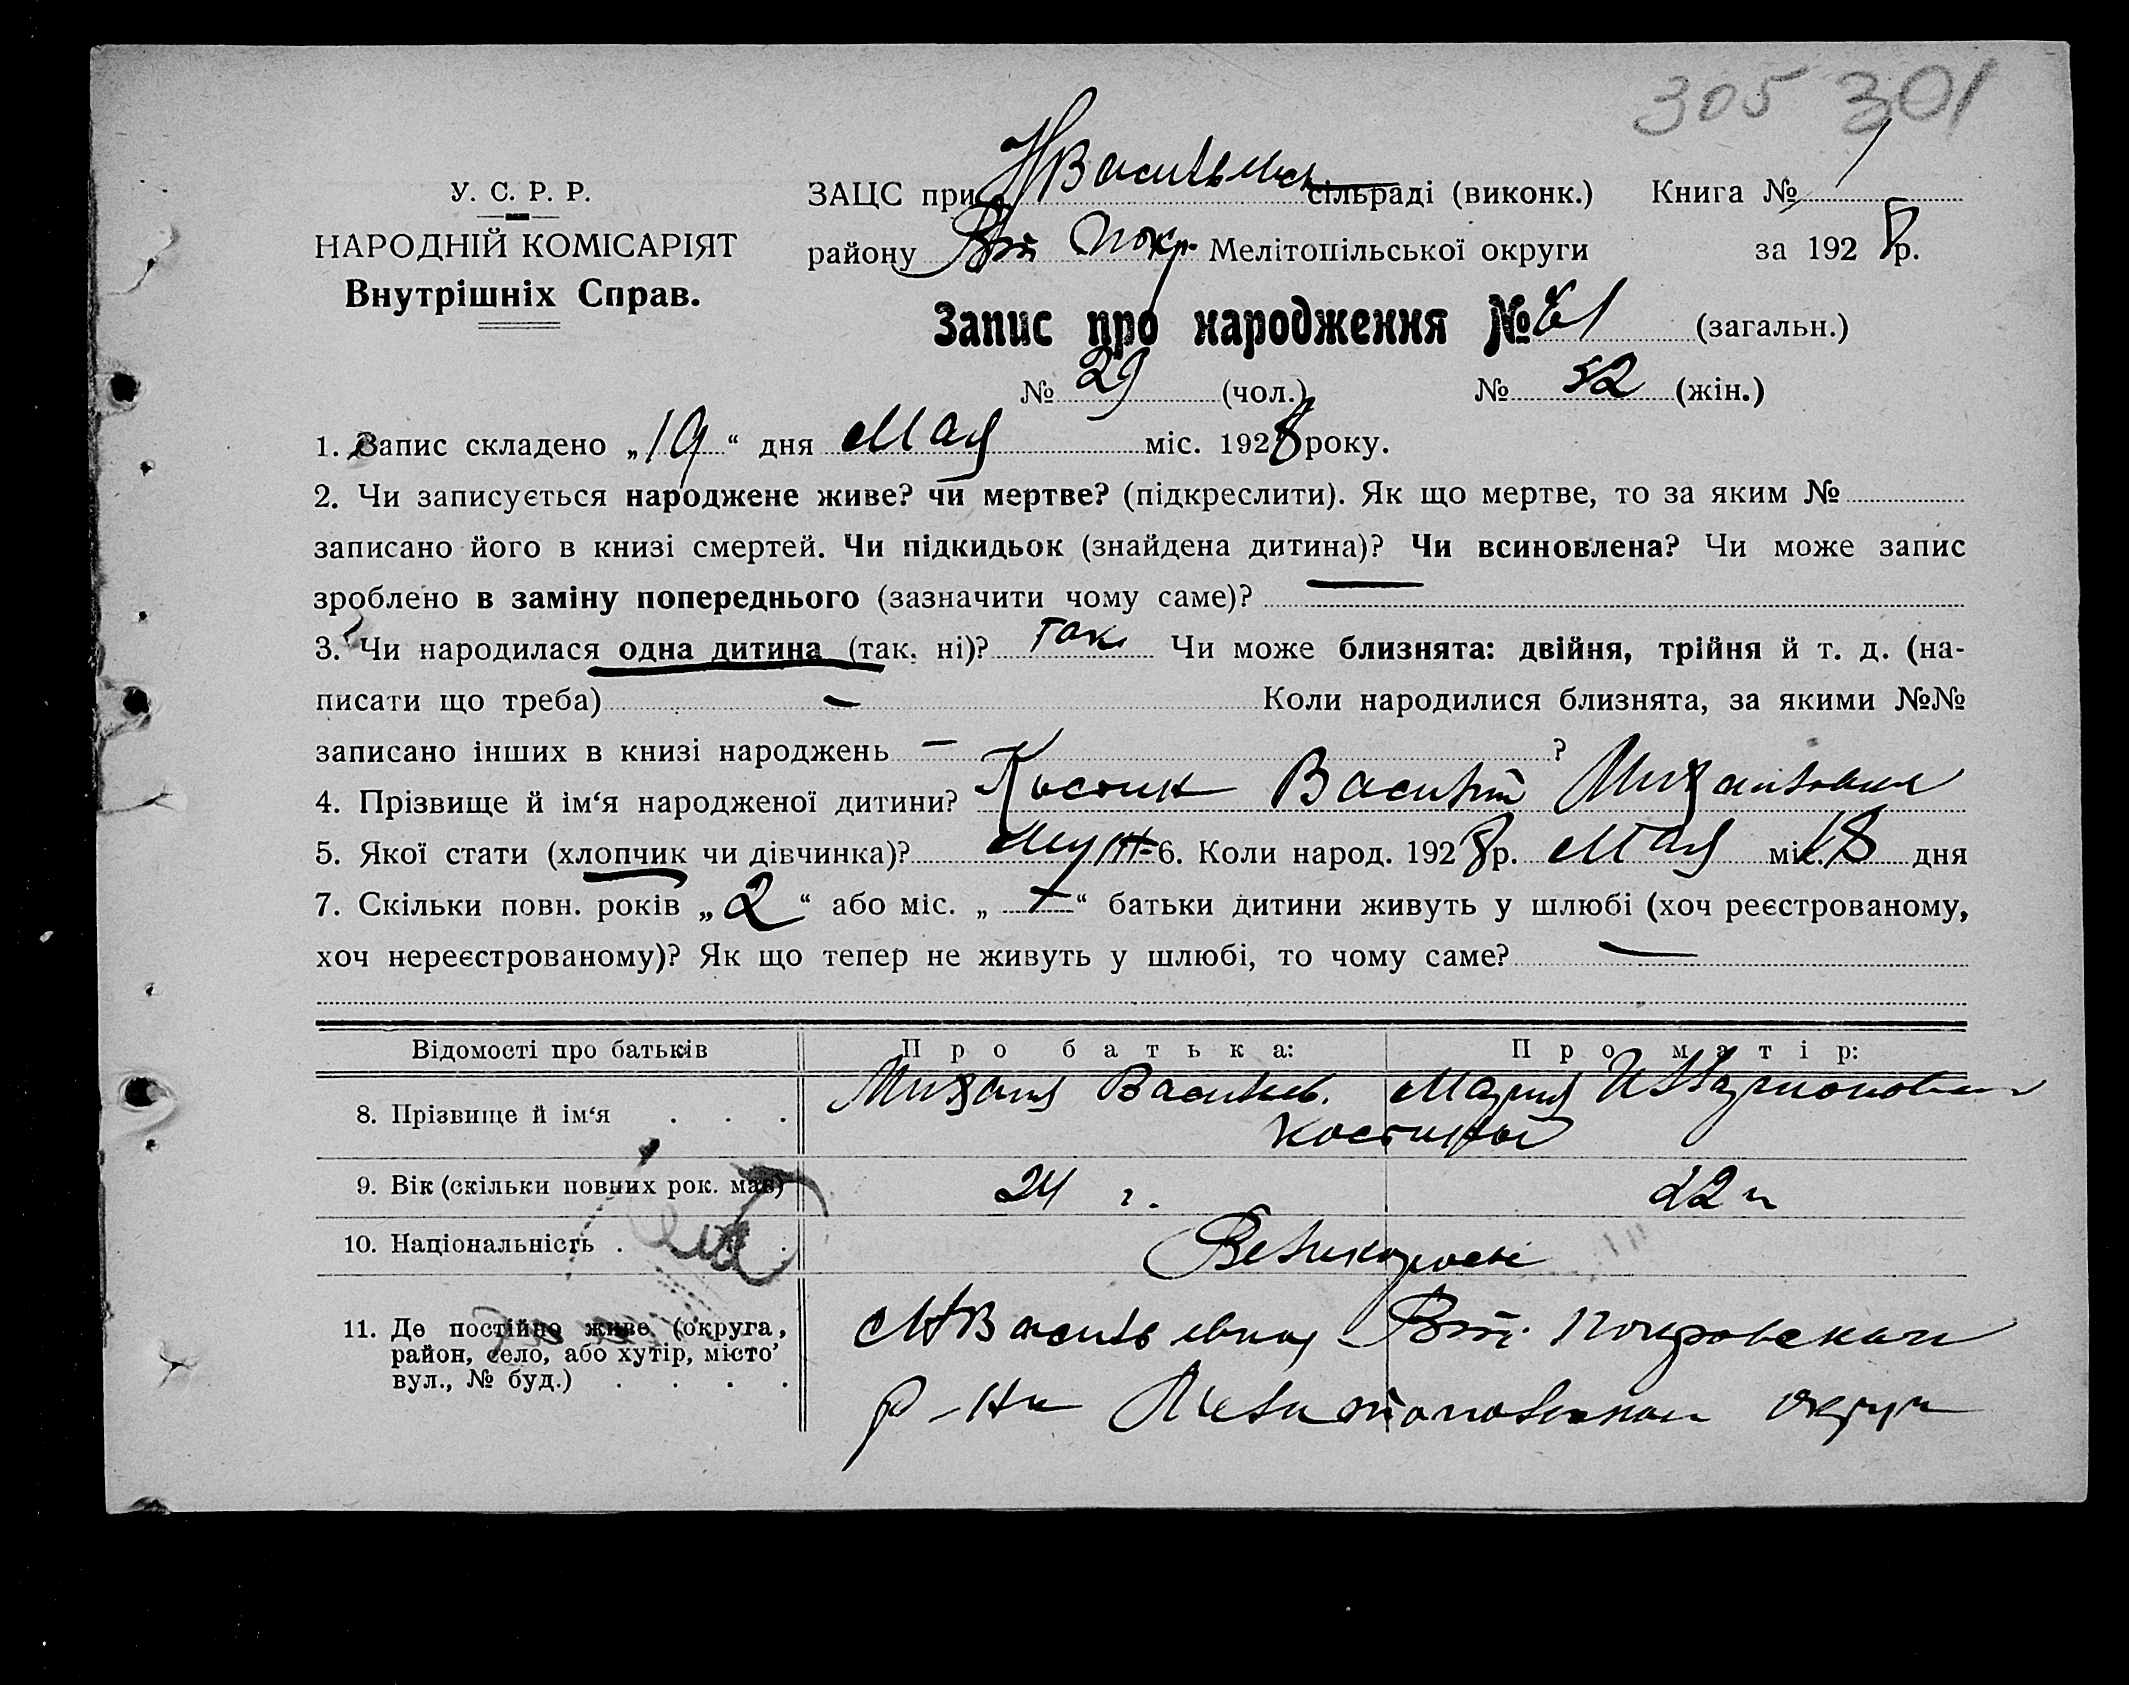 305 301
У. С. Р. Р.
НАРОДНІЙ КОМІСАРІЯТ
Внутрішніх Справ.
ЗАЦС при НВасильевс сільраді (виконк.) Книга № 1
району Вт Покр. Мелітопільської округи за 192 8 р.
Запис про народження № 61 (загальн.)
№ 29 (чол.) № 32 (жін.)
1. Запис складено „19“ дня Мая міс. 1928 року.
2. Чи записується народжене живе? чи мертве? (підкреслити). Як що мертве, то за яким №
записано його в книзі смертей. Чи підкидьок (знайдена дитина)? Чи всиновлена? Чи може запис
зроблено в заміну попереднього (зазначити чому саме)? —
3. Чи народилася одна дитина (так, ні)? так Чи може близнята: двійня, трійня й т. д. (на-
писати що треба) — Коли народилися близнята, за якими №№
записано інших в книзі народжень — ?
4. Прізвище й ім‘я народженої дитини? Костик Василий Михайлович
5. Якої стати (хлопчик чи дівчинка)? Муж 6. Коли народ. 1928 р. Мая міс. 18 дня
7. Скільки повн. років „2“ або міс. „—“ батьки дитини живуть у шлюбі (хоч реєстрованому,
хоч нереєстрованому)? Як що тепер не живуть у шлюбі, то чому саме? —
Відомості про батьків Про батька: Про матір:
8. Прізвище й ім‘я . . . Михаил Васильев. Мария
9. Вік (скільки повних рок. має) 24 г. 22 г
10. Національність . Великоросы
11. Де постійно живе (округа, НВасильевка Вт. Покровский
район, село, або хутір, місто,
вул., № буд.) . . . . р-на Мелитопольской округи